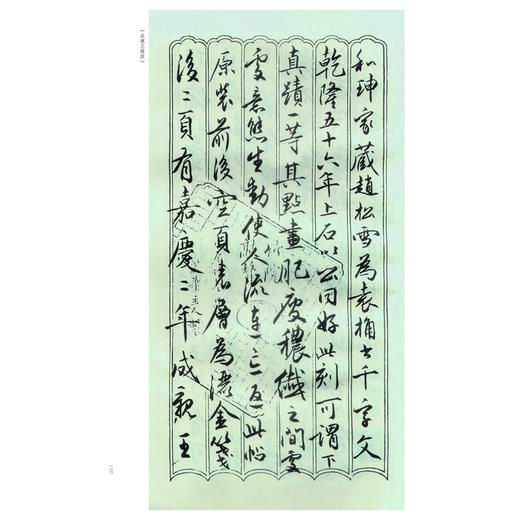 和珅家藏趙松雪為袁桷書千字文
乾隆五十六年上石以公同好此刻可謂下
真蹟一等其點畫肥瘦穠纖之間靈
雯意態生動使人流連忘返此帖
原裝前後空頁表層為灑金箋
後二頁有嘉慶二年成親王